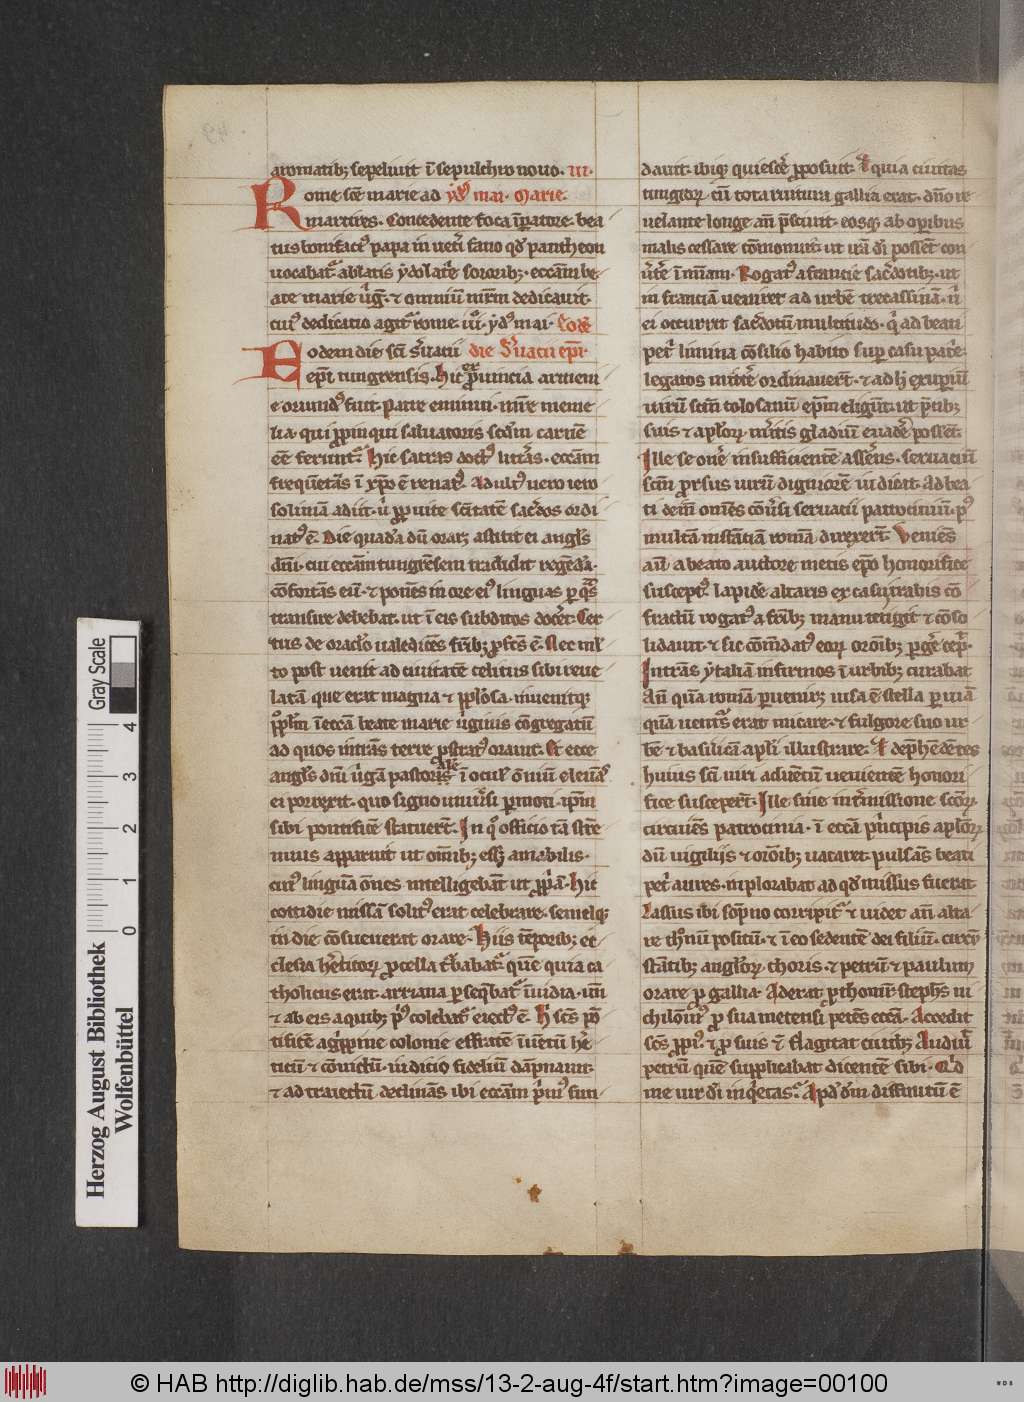 aromatib; sepeliuit ī sepulchro nouo. iii.
Rome scē marie ad ẏdꝰ mai. Marie.
martires. Concedente foca īꝑatore. bea
tus bonifaciꝰ papa in ueti fano qd̄ pantheon
uocabat᷑ ablatis ẏdolatͥe sordib;. eccām be
ate marie uͥg̅. ⁊ omniū mr̄m dedicauit.
cuiꝰ dedicatio agit᷑ rome. iiiͦ. ẏdꝰ mai. Eodē
Eodem die sci s̄uatii die S̄uacii epī.
epī tungrensis. Hic ex ꝓuincia armeni
e oriundꝰ fuit. Patre emiui. mr̄e meme
lia. qui ꝓpinqui saluatoris scdm̄ carnē
eē ferunt᷑. Hic sacras doctꝰ litt̄as. eccām
frequētās ī xp̄o ē renatꝰ. Adultꝰ uero iero
solimā adiit. ꝓ uite scītatē sac̄dos ordi
natꝰ ē. Die quadā dū orar; astitit ei angl̄s
dn̄i. cui eccām tungrēsem tradidit regēdā.
cōfortās eū. ⁊ ponēs in ore eiꝰ linguas ꝑ qͣs
transire debebat. ut ī eis subditos docēt. Cer
tus de oraclo ualedicēs fr̄ib; ꝓfcs̄ ē. Nec ml
to post uenit ad ciuitatē celitus sibi reue
latā que erat magna ⁊ ppl̄osa. inuenitqꝫ
ppl̄m ī eccā beate marie uͥginis cōgregatū
ad quos intrās terre ꝓstratꝰ orauit. Et ecce
angl̄s dn̄i uͥgā pastoris alē ī ocul' oīniū eleuās
ei porrexit. quo signo uniūsi ꝑmoti. ip̄m
sibi pontificē statuerūt. In qͦ officio tā stre
nuus apparuit ut omīb; ess; amabilis.
cuiꝰ linguā om̄es intelligebāt ut ꝓpͥā. Hic
cottidie missā solitꝰ erat celebrare. semelqꝫ
in die cōsueuerat orare. Hiis tēporib; ec
clesia hēticorꝫ ꝓcella tͥbabat᷑ quē quia ca
tholicus erat. arriana ꝑseqbat᷑ īuidia. un̄
⁊ ab eis a quib; pͥꝰ colebat᷑ eiectꝰ ē. H̄ scs̄ pō
tifitē agͥppine colonie effratē īuētū hē
ticū ⁊ cōuictū. iudicio fideliū dāpnauit.
⁊ ad traiectū declinās ibi eccām pͥmꝰ fun
dauit. ibiqꝫ quiescē ꝓposuit. Et quia ciuitas
tungrorꝫ cū tota ruitura gallia erat. dn̄o re
uelante longe an̄ p̄sciuit. eosqꝫ ab oꝑibus
malis cessare cōmonuit. ut irā dī possēt con
ūtē ī misām. Rogatꝰ a francie sac̄dotib;. ut
in franciā ueniret ad urbē trecassinā.
ei occurrit sac̄dotū multitudo. qͥ ad beati
petͥ limina cōsilio habito suꝑ casu patͥe.
legatos mittē ordinauerūt. ⁊ ad h̄ exuperiū
uirū scm̄ tolosanū epm̄ eligūt. ut p̄cib;
suis ⁊ aplorꝫ mͥtis gladiū euadē possēt.
Ille se onē insufficientē asserēs. seruaciū
scm̄ ꝓrsus uirū digniorē iudicāt. Ad bea
ti deiū om̄es cōūsi seruacii patrociniū. pꝰ
multā instāciā romā direxerūt. Veniēs
aū a beato auctore metis epō honorifice
susceptꝰ. lapidē altaris ex casu trabis cō
fractū rogatꝰ a fr̄ib; manu tetigit ⁊ cōso
lidauit. ⁊ sic cōmēdatꝰ eorꝫ oroīb; ꝑgē cepͥt.
Intrās ẏtaliā infirmos ī urbib; curabat.
An̄ quā romā ꝑueniꝫ uisa ē stella ꝑ uiā
quā uentͧs erat micare. ⁊ fulgore suo ur
bē ⁊ basilicā apl̄i illustrare. Et dephēdētes
huius scī uiri aduētū ueniente honori
fice susceperūt. Ille sine inͭmissione scōrꝫ
circuiēs patrocinia. ī eccā pͥncipis aplōrꝫ
dū uigiliis ⁊ oroīb; uacaret pulsās beati
petͥ aures. inplorabat ad qd̄ missus fuerat.
Lassus ibi sōpno corripit᷑ ⁊ uidet an̄ alta
re thͦnū positū. ⁊ ī eo sedentē dei filiū. circū
stātib; anglorꝫ choris. ⁊ petrū ⁊ paulum
orare ꝓ gallia. Aderat prothomͬ stephꝰ ni
chilōinꝰ ꝓ sua metensi petēs eccā. Accedit
scs̄ ꝓpͥꝰ ⁊ ꝓ suis ⁊ flagitat ciuib; Audiuͥt
petrū quē supplicabat dicentē sibi. Qͥd
me uir dī inqͥetas. Apd̄ dm̄ diffinitū ē
4
3
2
1
0
Gray Scale
Herzog August Bibliothek
Wolfenbüttel
© HAB http://diglib.hab.de/mss/13-2-aug-4f/start.htm?image=00100